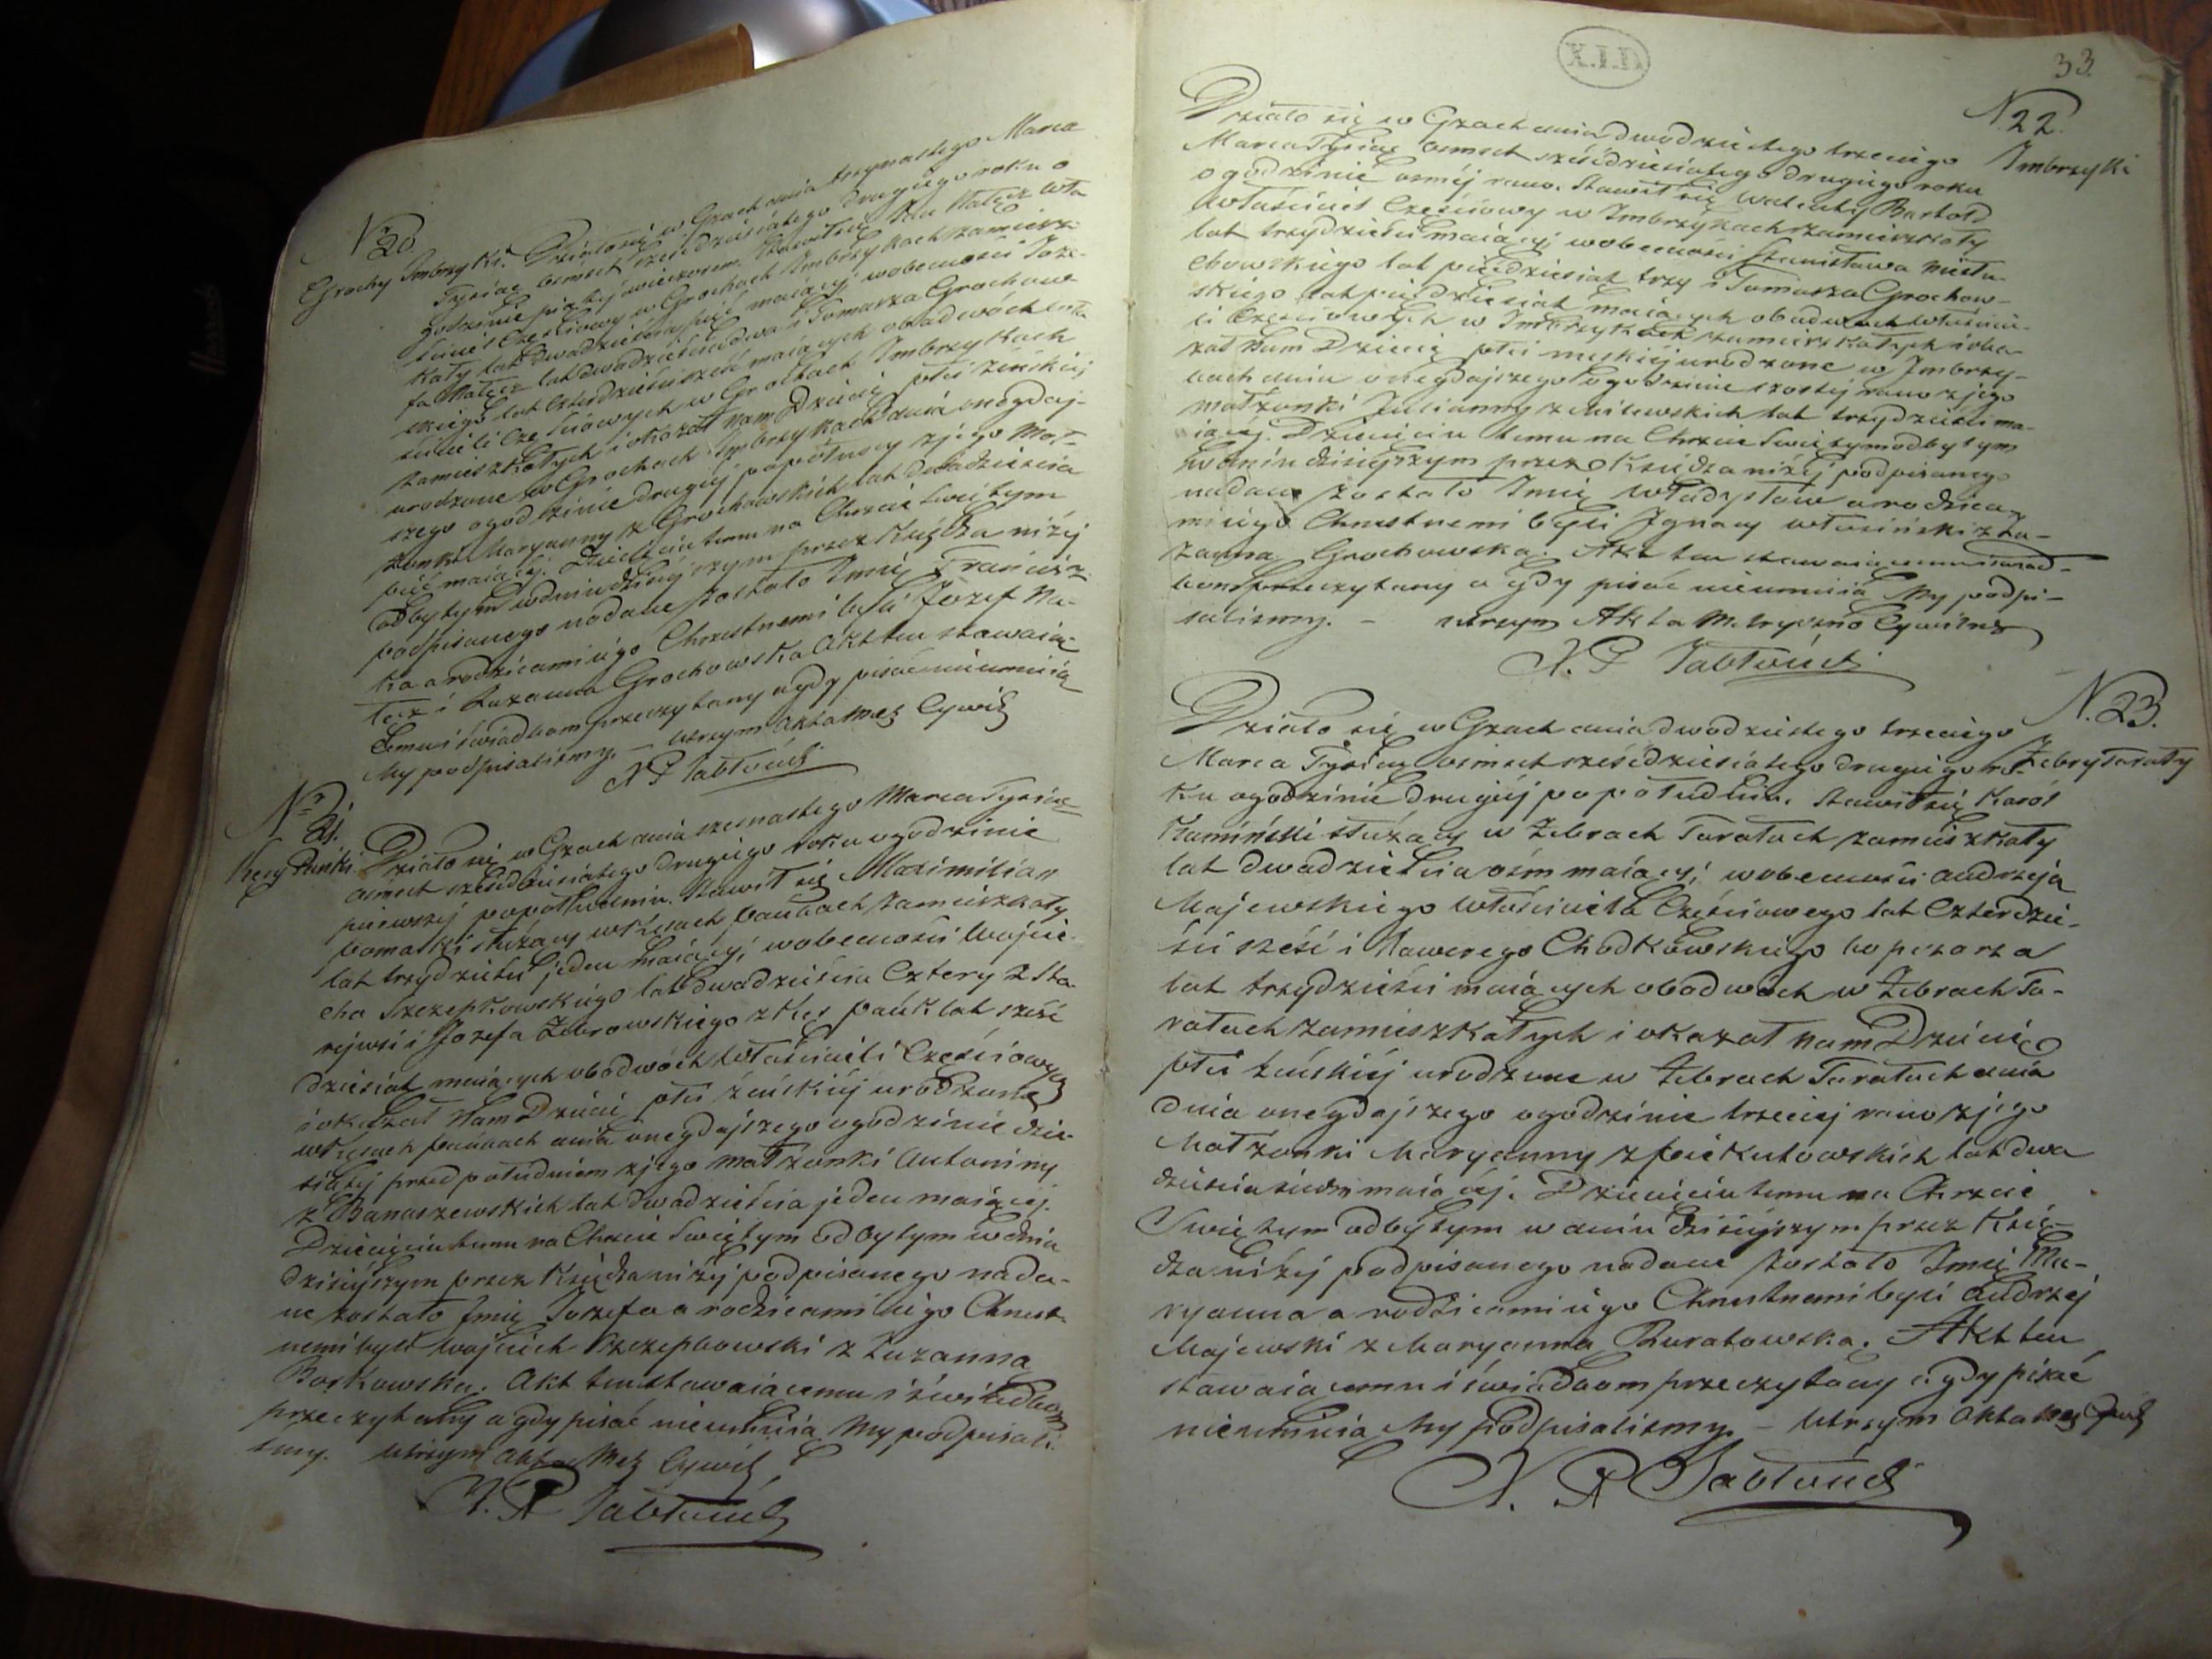 N. 20.
Grochy Imbrzyki. Działo się w Gzach dnia trzynastego Marca
Tysiąc ośmset sześćdziesiątego drugiego roku o
godzinie piątej wieczorem. Stawił się Jan Nałęcz wła
ściciel Częściowy w Grochach Imbrzykach zamiesz-
kały lat dwadzieścia pięć maiący w obecności Józe-
fa Nałęcz lat dwadzieścia dwa i Tomasza Grochow
skiego lat czterdzieści sześć maiących obudwóch wła
ścicieli Częściowych w Grochach Imbrzykach
zamieszkałych i okazał nam Dziecię płci żeńskiej
urodzone w Grochach Imbrzykach dnia onegdaj-
szego o godzinie drugiej popołudniu z jego Mał-
żonki Maryanny z Grochowskich lat dwadzieścia
pięć maiącej. Dziecięciu temu na Chrzcie Świętym
odbytym w dniu dzisiejszym przez Księdza niżej
podpisanego nadane zostało Imię Francisz-
ka a rodzicami iego Chrzestnemi byli Józef Na-
łęcz i Zuzanna Grochowska Akt ten stawaią-
cemu i świadkom przeczytany a gdy pisać nieumieią
My podpisaliśmy. — Utrzym Akta Me Cywil
X P Jabłoński
N. 21.
Kęsy Pańki. Działo się w Gzach dnia szesnastego Marca Tysiąc
ośmset sześćdziesiątego drugiego roku o godzinie
pierwszej popołudniu. Stawił się Maximilian
służący w Kęsach Pańkach zamieszkały
lat trzydzieści jeden maiący, w obecności Wojcie-
cha Szczepkowskiego lat dwadzieścia Cztery z Sta-
rejwsi i Józefa Żebrowskiego z Kęs Pańk lat sześć
dziesiąt maiących obudwóch Właścicieli Częściowych
i okazał Nam Dziecię płci żeńskiej urodzone
w Kęsach Pańkach dnia onegdajszego o godzinie dzie-
siątej przed południem z jego Małżonki Antoniny
z Banaszewskich lat dwadzieścia jeden maiącej.
Dziecięciu temu na Chrzcie Świętym odbytym w dniu
dzisiejszym przez Księdza niżej podpisanego nada-
ne zostało Imię Józefa a rodzicami iego Chrzest-
nemi byli Wojciech Szczepkowski z Zuzanną
Borkowską. Akt ten stawaiącemu i świadkom
przeczytany a gdy pisać nieumieią My podpisali-
śmy. Utrzym Akta Me Cywil
X. P Jabłoński
X.I.D
33.
N. 22.
Imbrzyki
Działo się w Gzach dnia dwudziestego trzeciego
Marca Tysiąc ośmset sześćdziesiątego drugiego roku
o godzinie ósmej rano. Stawił się Walenty Bartold
Właściciel Częściowy w Imbrzykach zamieszkały
lat trzydzieści maiący; w obecności Stanisława
chowskiego lat pięćdziesiąt trzy i Tomasza Grochow-
skiego lat pięćdziesiąt maiących obudwóch Właścicie-
li Częściowych w Imbrzykach zamieszkałych i oka-
zał Nam Dziecię płci męskiej urodzone w Imbrzy-
kach dnia onegdajszego o godzinie szóstej rano z jego
małżonki Julianny z Milewskich lat trzydzieści ma-
iącej. Dziecięciu temu na Chrzcie Świętym odbytym
w dniu dzisiejszym przez Księdza niżej podpisanego
nadane zostało Imię Władysław a rodzica-
mi iego Chrzestnemi byli Ignacy z Zu-
zanną Grochowską. Akt ten stawaiącemu i świad-
kom przeczytany a gdy pisać nieumieią My podpi-
saliśmy. — utrzym Akta Metryczno Cywilne
X. P Jabłoński
N. 23.
Żebry Taraty
Działo się w Gzach dnia dwudziestego trzeciego
Marca Tysiąc ośmset sześćdziesiątego drugiego ro-
ku o godzinie drugiej popołudniu. Stawił się Karol
Kamiński służący w Żebrach Taratach zamieszkały
lat dwadzieścia ośm maiący; w obecności Andrzeja
Majewskiego Właściciela Częściowego lat Czterdzie-
ści sześć i Xawerego Chodkowskiego kopczarza
lat trzydzieści maiących obudwóch w Żebrach Ta-
ratach zamieszkałych i okazał nam Dziecię
płci żeńskiej urodzone w Żebrach Taratach dnia
dnia onegdajszego o godzinie trzeciej rano z jego
Małżonki Maryanny z Piekutowskich lat dwa
dzieścia siedm maiącej. Dziecięciu temu na Chrzcie
Świętym odbytym w dniu dzisiejszym przez Księ-
dza niżej podpisanego nadane zostało Imię Ma-
ryanna a rodzicami iego Chrzestnemi byli Andrzej
Majewski z Maryanną Buratowską. Akt ten
stawaiącemu i świadkom przeczytany a gdy pisać
nieumieią My podpisaliśmy. — Utrzym Akta Me Cywil
X. P Jabłoński